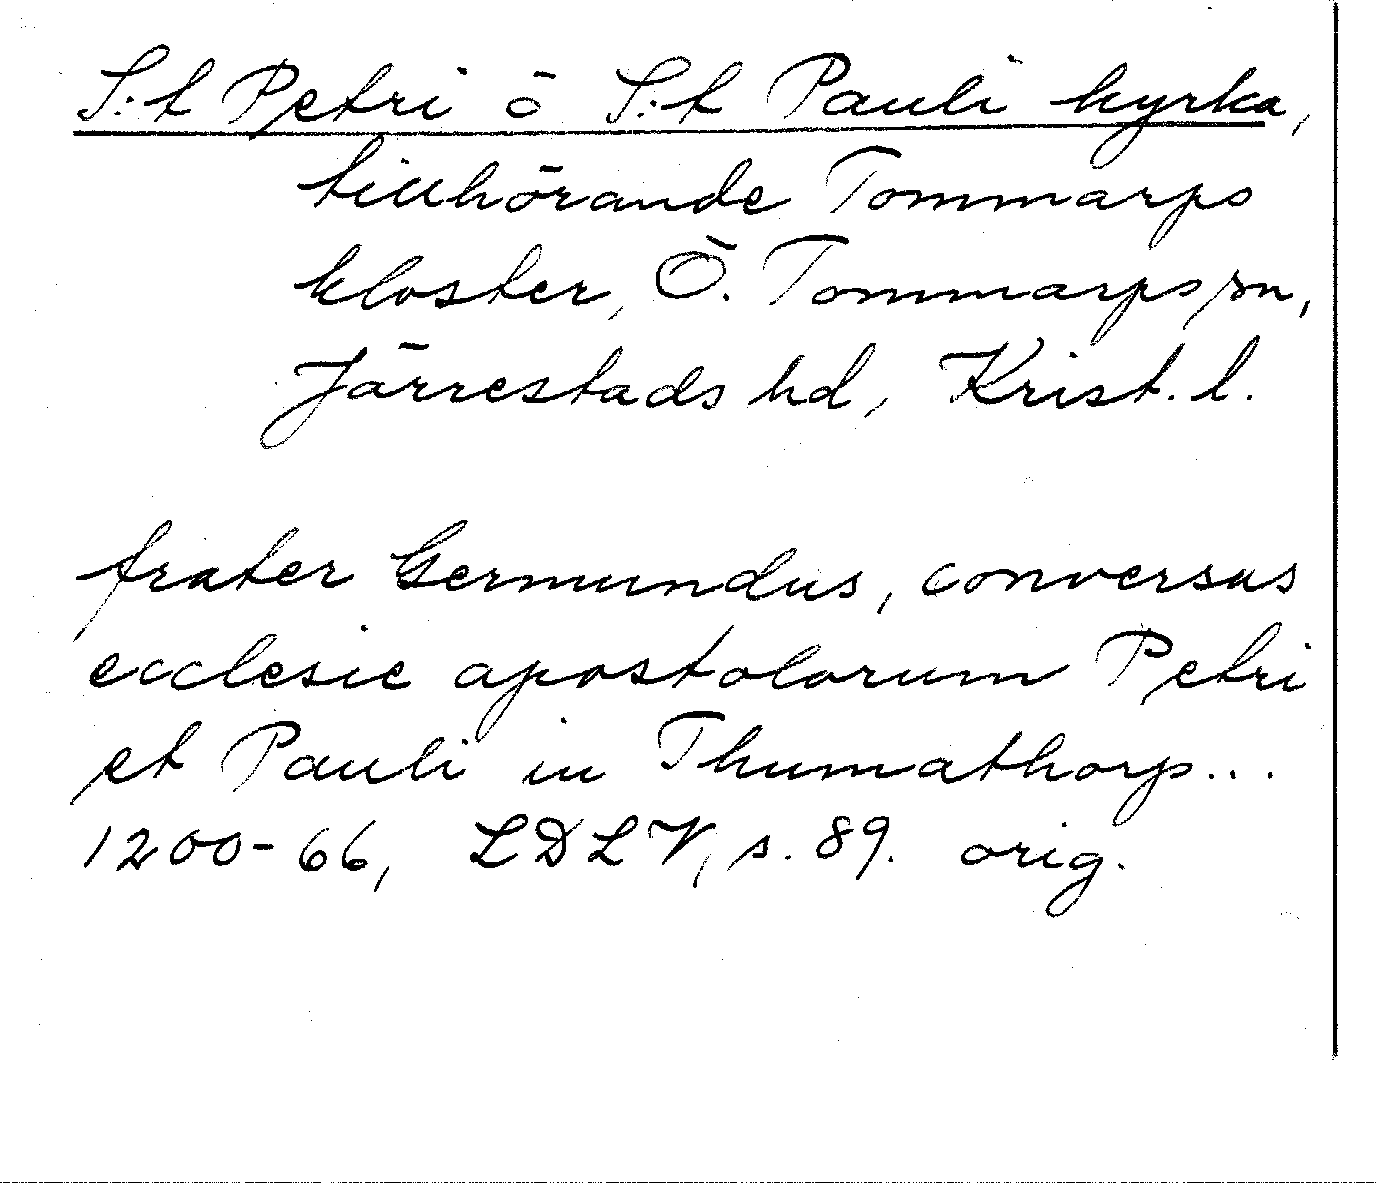 S:t Petri ō S:t Pauli kyrka,
tillhörande Tommarps
kloster, Ö. Tommarps sn,
Järrestads hd, Krist. l.
frater Germundus, conversus
ecclesie apostolorum Petri
et Pauli in Thumathorp...
1200-66, LDLV, s. 89. orig.